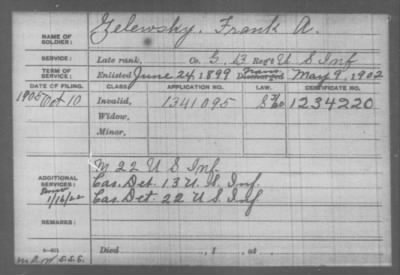 NAME OF SOLDIER: Zelewsky, Frank A.
SERVICE: Late rank, Co. G, 13 Reg't U S Inf
TERM OF SERVICE: Enlisted June 24, 1899 Discharged May 9, 1902
DATE OF FILING. CLASS. APPLICATION NO. LAW. CERTIFICATE NO.
1905 Oct 10 Invalid, 1341095 1234220
Widow,
Minor,
ADDITIONAL SERVICES: M 22 U S Inf.
Cas. Det. 13 U. S. Inf.
1/16/22 Cas. Det. 22 U. S. Inf
REMARKS:
Died , 1 , at